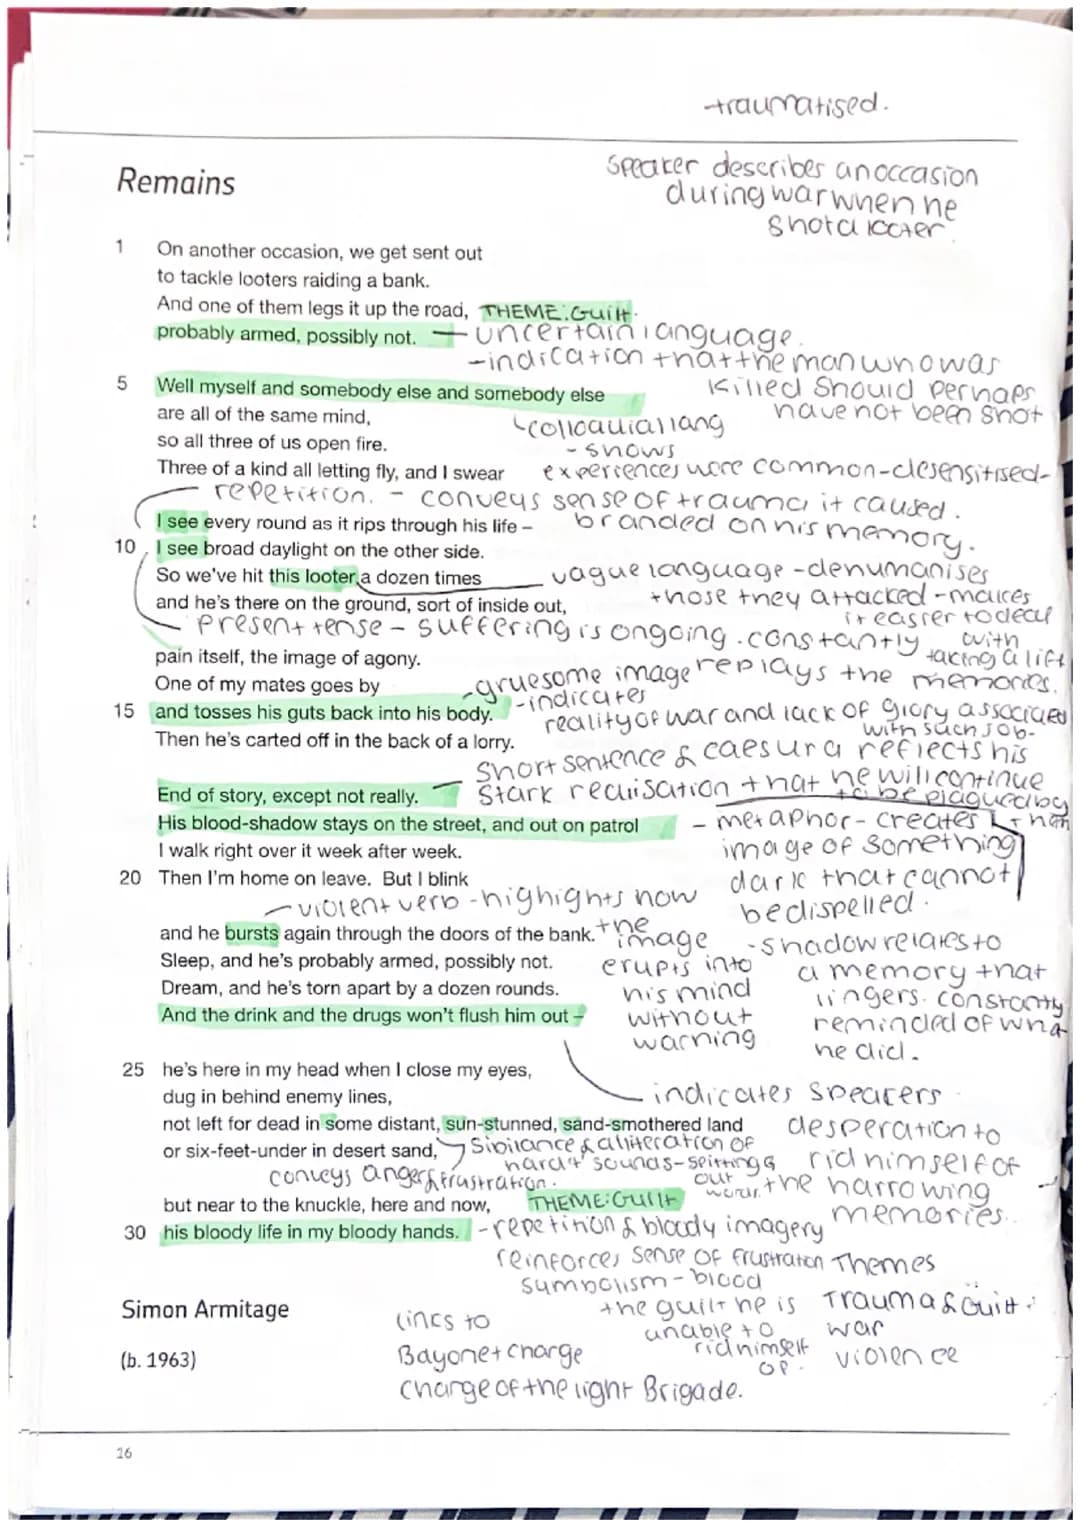 traumatised.
Remains
Speaker describes an occasion
during war when he
shot a looter.
1 On another occasion, we get sent out
to tackle looters raiding a bank.
And one of them legs it up the road, THEME: Guilt.
probably armed, possibly not. - uncertain language.
-indication that the man who was
killed should perhaps
have not been shot
5 Well myself and somebody else and somebody else
are all of the same mind,
so all three of us open fire.
Three of a kind all letting fly, and I swear
colloquial lang
- shows
experiences were common-desensitised-
repetition. - conveys sense of trauma it caused.
branded on his memory.
I see every round as it rips through his life –
10 I see broad daylight on the other side.
So we've hit this looter a dozen times
and he's there on the ground, sort of inside out,
vague language - dehumanises
those they attacked - makes
it easier to deal
with
taking a life
present tense - suffering is ongoing. constantly
replays the memories.
pain itself, the image of agony.
One of my mates goes by
15 and tosses his guts back into his body.
Then he's carted off in the back of a lorry.
-gruesome image
-indicates
reality of war and lack of glory associated
with such job.
short sentence & caesura reflects his
stark realisation that he will continue
to be plagued by
End of story, except not really.
His blood-shadow stays on the street, and out on patrol
I walk right over it week after week.
20 Then I'm home on leave. But I blink
- metaphor - creates
image of something
dark that cannot
be dispelled.
- violent verb - highights how
the
image
erupts into
his mind
without
warning
and he bursts again through the doors of the bank.
Sleep, and he's probably armed, possibly not.
Dream, and he's torn apart by a dozen rounds.
And the drink and the drugs won't flush him out –
-shadow relates to
a memory that
lingers. constantly
reminded of wha
he did.
25 he's here in my head when I close my eyes,
dug in behind enemy lines,
not left for dead in some distant, sun-stunned, sand-smothered land
or six-feet-under in desert sand,
indicates speakers
desperation to
rid himself of
the harrowing
memories.
Sibilance & alliteration of
hard 't' sounds - spitting
out
conveys anger & frustration.
but near to the knuckle, here and now,
THEME: Guilt
30 his bloody life in my bloody hands. - repetition & bloody imagery
reinforces sense of frustraton
symbolism - blood
the guilt he is
unable to
rid himself
of.
Themes
Trauma & Guilt
war
violence
Simon Armitage
(b. 1963)
lincs to
Bayonet charge
charge of the light Brigade.
16